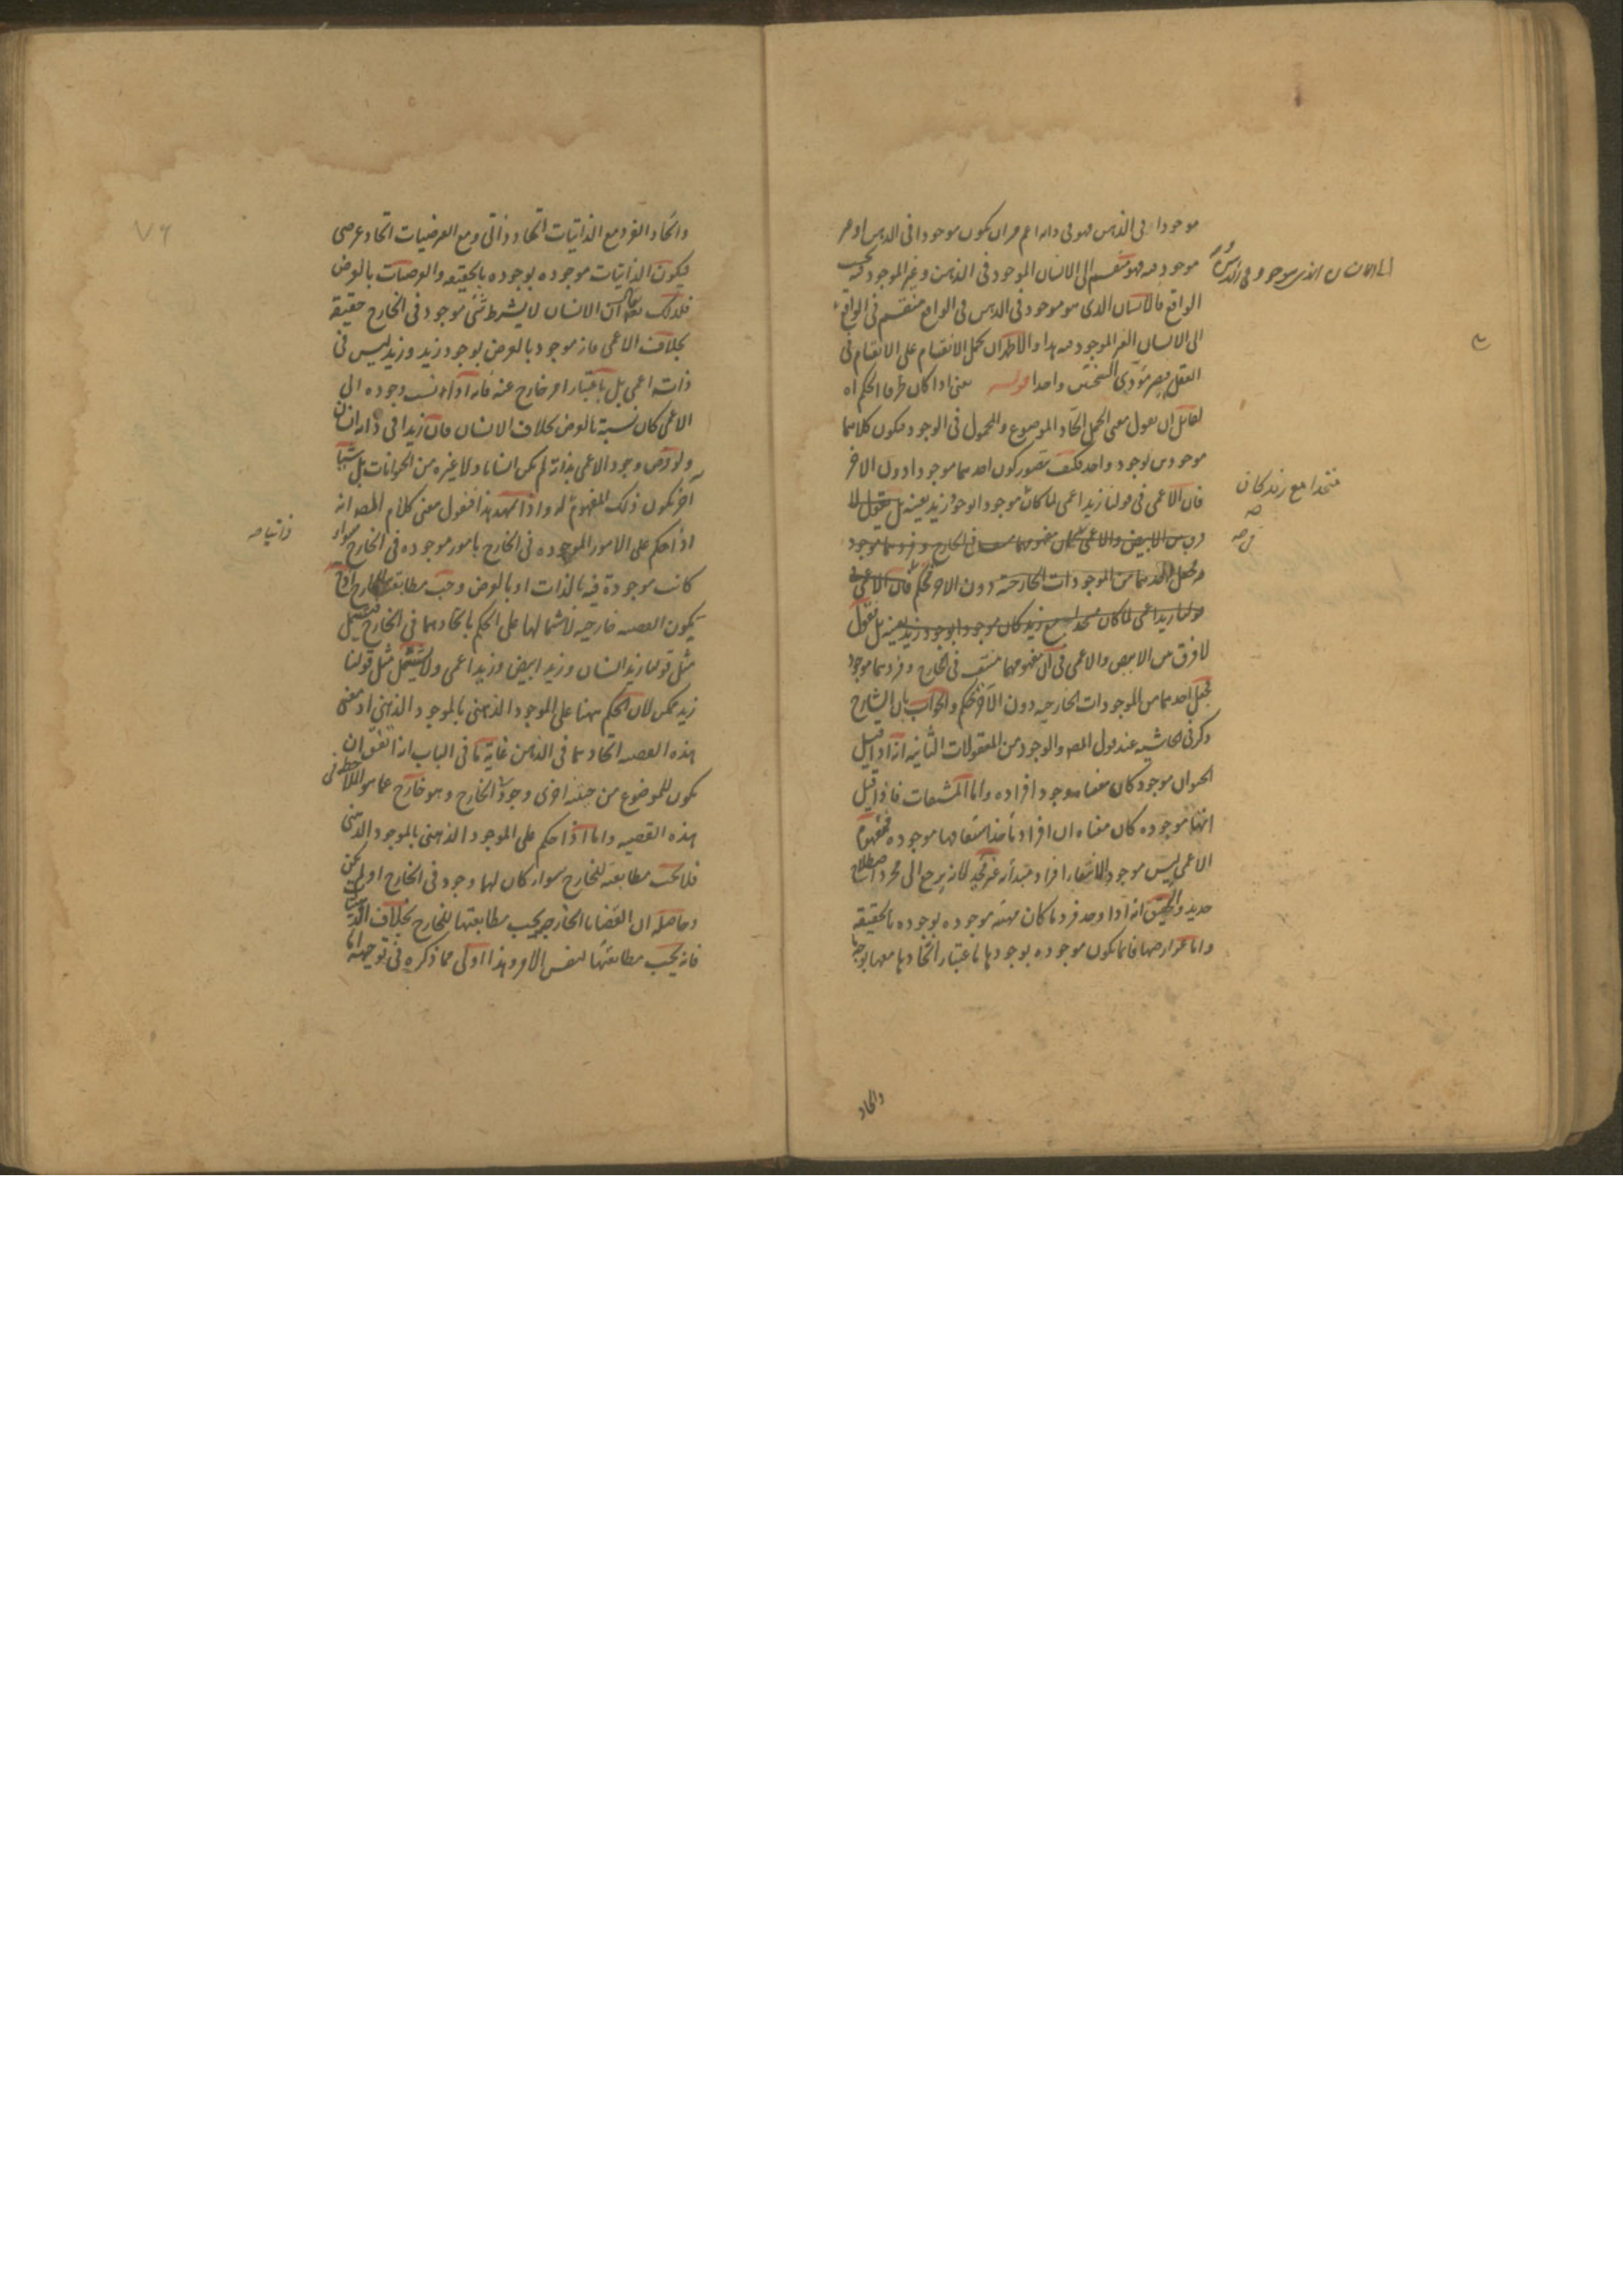 موجودا فى الذهن فهو فى ذاته اعم من ان يكون موجودا فى الذهن او غير
موجود فيه فهو منقسم الى الانسان الموجود فى الذهن وغير الموجود فيه بحسب
الواقع فالانسان الذى هو موجود فى الذهن فى الواقع منقسم فى الواقع
الى الانسان الغير الموجود فيه هذا والاظهر ان يحمل الانقسام على الانقسام فى
العقل فيصير مؤدى النسختين واحدا قوله يعنى اذا كان طرفا الحكم اه
لقائل ان يقول معنى الحمل اتحاد الموضوع والمحمول فى الوجود فيكون كلاهما
موجودين بوجود واحد فكيف يتصور كون احدهما موجودا دون الاخر
فان الاعمى فى قولنا زيد اعمى لما كان موجودا بوجود زيد بعينه بل نقول لا
فرق بين الابيض والاعمى فى ان مفهومهما منتف فى الخارج وفردهما موجود
فجعل احدهما من الموجودات الخارجية دون الاخر تحكم فان الاعمى فى
قولنا زيد اعمى لما كان متحدا مع زيد كان موجودا بوجود زيد بعينه بل نقول
لا فرق بين الابيض والاعمى فى ان مفهومهما منتف فى الخارج وفردهما موجود
فجعل احدهما من الموجودات الخارجيه دون الآخر تحكم والجواب بان الشارح
ذكر فى الحاشيه عند قول المص والوجود من المعقولات الثانيه انه اذا قيل
الحيوان موجود كان معناه وجود افراده واما المشتقات فاذا قيل
انها موجوده كان معناه ان افراد ماخذ اشتقاقها موجوده فمفهوم
الاعمى ليس موجودا لانتفاء افراد مبدأه غير مجد لانه يرجع الى مجرد اصطلاح
جديد والتحقيق انه اذا وجد فرد ما كان مهيته موجوده بوجوده بالحقيقه
واما عوارضها فانما يكون موجوده بوجودها باعتبار اتحادها معها بوجه ما
واتحاد
الى الانسان الذى هو موجود فى الذهن
متحدا مع زيد كان
صح
واتحاد الفرد مع الذاتيات اتحاد ذاتى ومع العرضيات اتحاد عرضى
فيكون الذاتيات موجوده بوجوده بالحقيقه والعرضيات بالعرض
فلذلك يقال ان الانسان لا بشرط شئ موجود فى الخارج حقيقة
بخلاف الاعمى فانه موجود بالعرض بوجود زيد وزيد ليس فى
ذاته اعمى بل باعتبار امر خارج عنه فانه اذا نسب وجوده الى
الاعمى كان نسبة بالعرض بخلاف الانسان فان زيدا فى ذاته انسان
ولو فرض وجود الاعمى بذاته لم يكن انسانا ولا غيره من الحيوانات بل شيئا
آخر يكون ذلك المفهوم له واذا تمهد هذا فنقول معنى كلام المص انه
اذا حكم على الامور الموجوده فى الخارج بامور موجوده فى الخارج سواء
كانت موجودة فيه بالذات او بالعرض وجب مطابقته للخارج اذ ح
يكون القضيه خارجيه لاشتمالها على الحكم باتحادهما فى الخارج فيشمل
مثل قولنا زيد انسان وزيد ابيض وزيد اعمى ولا يشتمل مثل قولنا
زيد ممكن لان الحكم ههنا على الموجود الذهنى بالموجود الذهنى اذ معنى
هذه القضيه اتحادهما فى الذهن غاية ما فى الباب انه اتفق ان
يكون للموضوع من جهة اخرى وجود فى الخارج وهو خارج عما هو الملاحظ فى
هذه القضيه واما اذا حكم على الموجود الذهنى بالموجود الذهنى
فلا يجب مطابقته للخارج سواء كان لها وجود فى الخارج او لم يكن
وحاصله ان القضايا الخارجيه يجب مطابقتها للخارج بخلاف الذهنيات
فانه يجب مطابقتها لنفس الامر وهذا اولى مما ذكره فى توجيهه اما
ذاتيا صح
٧٦